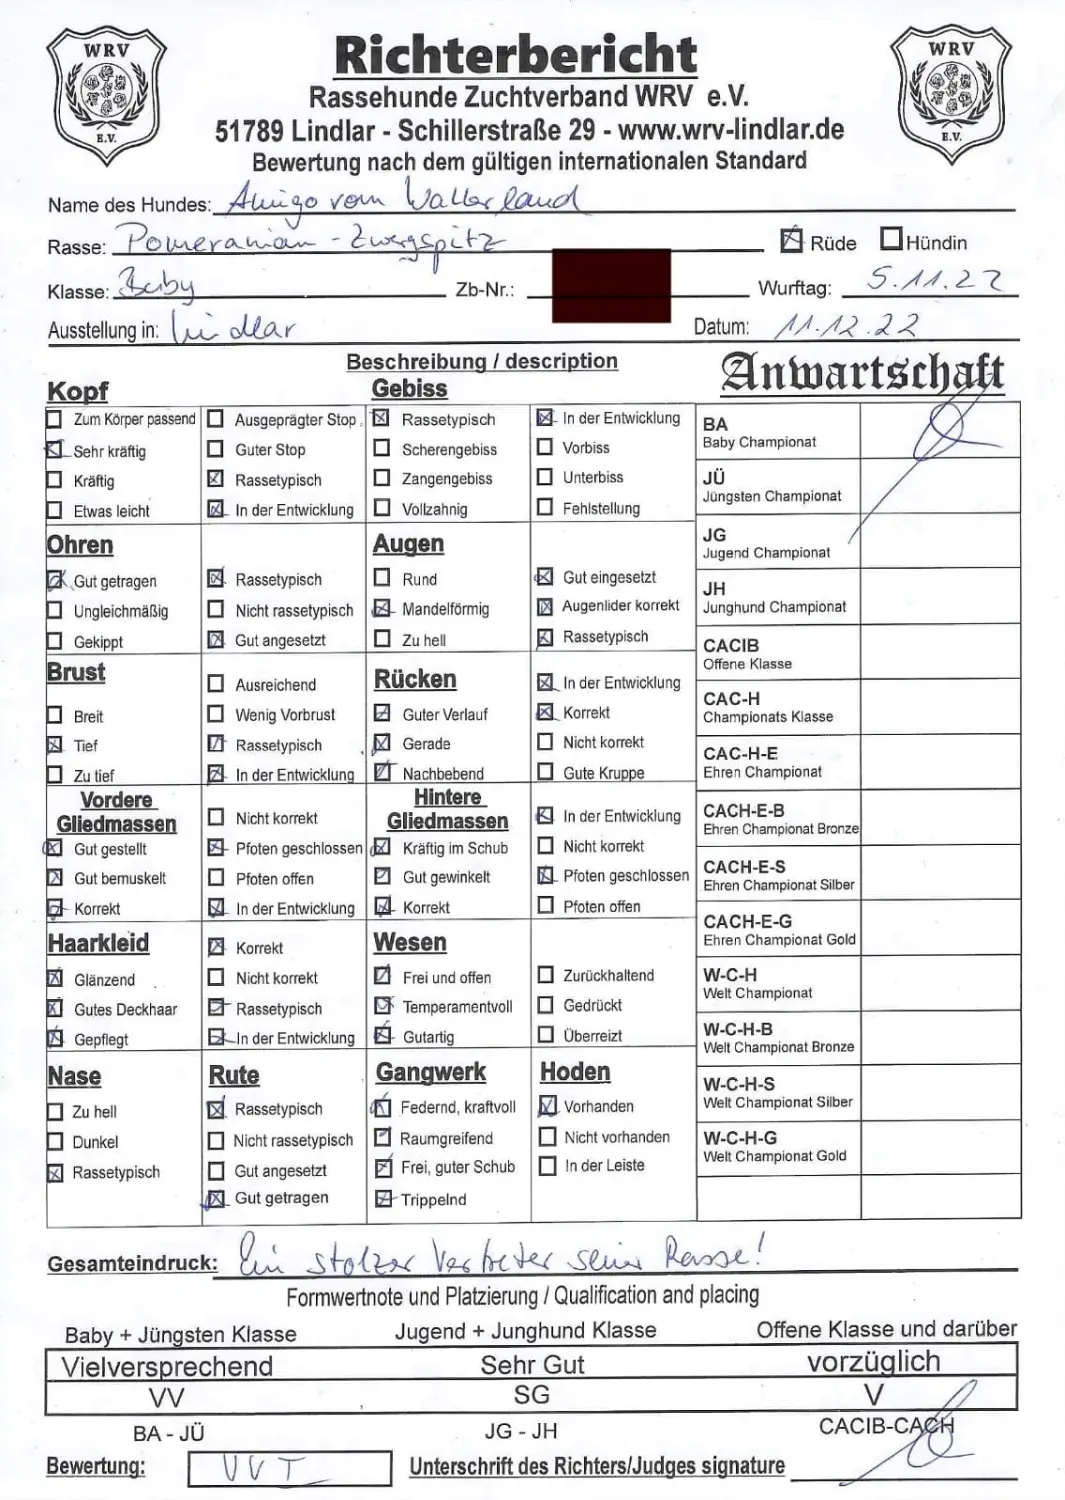 WRV
E.V.
WRV
E.V.
Richterbericht
Rassehunde Zuchtverband WRV e.V.
51789 Lindlar - Schillerstraße 29 - www.wrv-lindlar.de
Bewertung nach dem gültigen internationalen Standard
Name des Hundes: Amigo vom Wallerland
Rasse: Pomeranian - Zwergspitz Rüde Hündin
Klasse: Baby Zb-Nr.: Wurftag: 5.11.22
Ausstellung in: Lindlar Datum: 11.12.22
Beschreibung / description
Kopf Gebiss Anwartschaft
Zum Körper passend Ausgeprägter Stop Rassetypisch In der Entwicklung BA
Baby Championat
Sehr kräftig Guter Stop Scherengebiss Vorbiss
Kräftig Rassetypisch Zangengebiss Unterbiss JÜ
Jüngsten Championat
Etwas leicht In der Entwicklung Vollzahnig Fehlstellung
Ohren Augen JG
Jugend Championat
Gut getragen Rassetypisch Rund Gut eingesetzt JH
Ungleichmäßig Nicht rassetypisch Mandelförmig Augenlider korrekt Junghund Championat
Gekippt Gut angesetzt Zu hell Rassetypisch CACIB
Offene Klasse
Brust Ausreichend Rücken In der Entwicklung CAC-H
Breit Wenig Vorbrust Guter Verlauf Korrekt Championats Klasse
Tief Rassetypisch Gerade Nicht korrekt CAC-H-E
Zu tief In der Entwicklung Nachbebend Gute Kruppe Ehren Championat
Vordere Gliedmassen Nicht korrekt Hintere Gliedmassen In der Entwicklung CACH-E-B
Ehren Championat Bronze
Gut gestellt Pfoten geschlossen Kräftig im Schub Nicht korrekt
Gut bemuskelt Pfoten offen Gut gewinkelt Pfoten geschlossen CACH-E-S
Ehren Championat Silber
Korrekt In der Entwicklung Korrekt Pfoten offen CACH-E-G
Haarkleid Korrekt Wesen Ehren Championat Gold
Glänzend Nicht korrekt Frei und offen Zurückhaltend W-C-H
Welt Championat
Gutes Deckhaar Rassetypisch Temperamentvoll Gedrückt W-C-H-B
Gepflegt In der Entwicklung Gutartig Überreizt Welt Championat Bronze
Nase Rute Gangwerk Hoden W-C-H-S
Zu hell Rassetypisch Federnd, kraftvoll Vorhanden Welt Championat Silber
Dunkel Nicht rassetypisch Raumgreifend Nicht vorhanden W-C-H-G
Welt Championat Gold
Rassetypisch Gut angesetzt Frei, guter Schub In der Leiste
Gut getragen Trippelnd
Gesamteindruck: Ein stolzer Vertreter seiner Rasse!
Formwertnote und Platzierung / Qualification and placing
Baby + Jüngsten Klasse Jugend + Junghund Klasse Offene Klasse und darüber
Vielversprechend Sehr Gut vorzüglich
VV SG V
BA - JÜ JG - JH CACIB-CACH
Bewertung: VV I Unterschrift des Richters/Judges signature